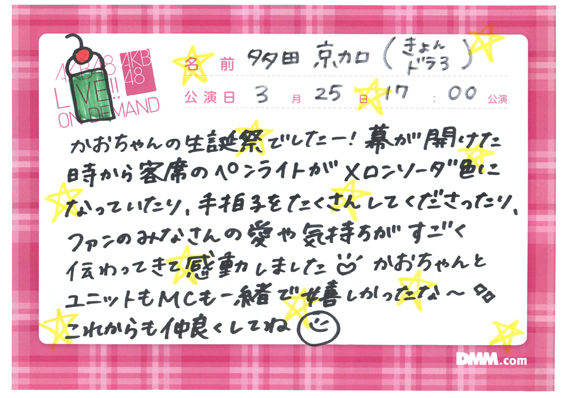 AKB48
LIVE!!
ON DEMAND
AKB
48
名前 多田 京加 (きょんドラ3)
公演日 3月25日 17:00公演
かおちゃんの生誕祭でしたー！幕が開けた
時から客席のペンライトがメロンソーダ色に
なっていたり、手拍子をたくさんしてくださったり、
ファンのみなさんの愛や気持ちがすごく
伝わってきて感動しました かおちゃんと
ユニットもMCも一緒で嬉しかったな〜
これからも仲良くしてね
DMM.com